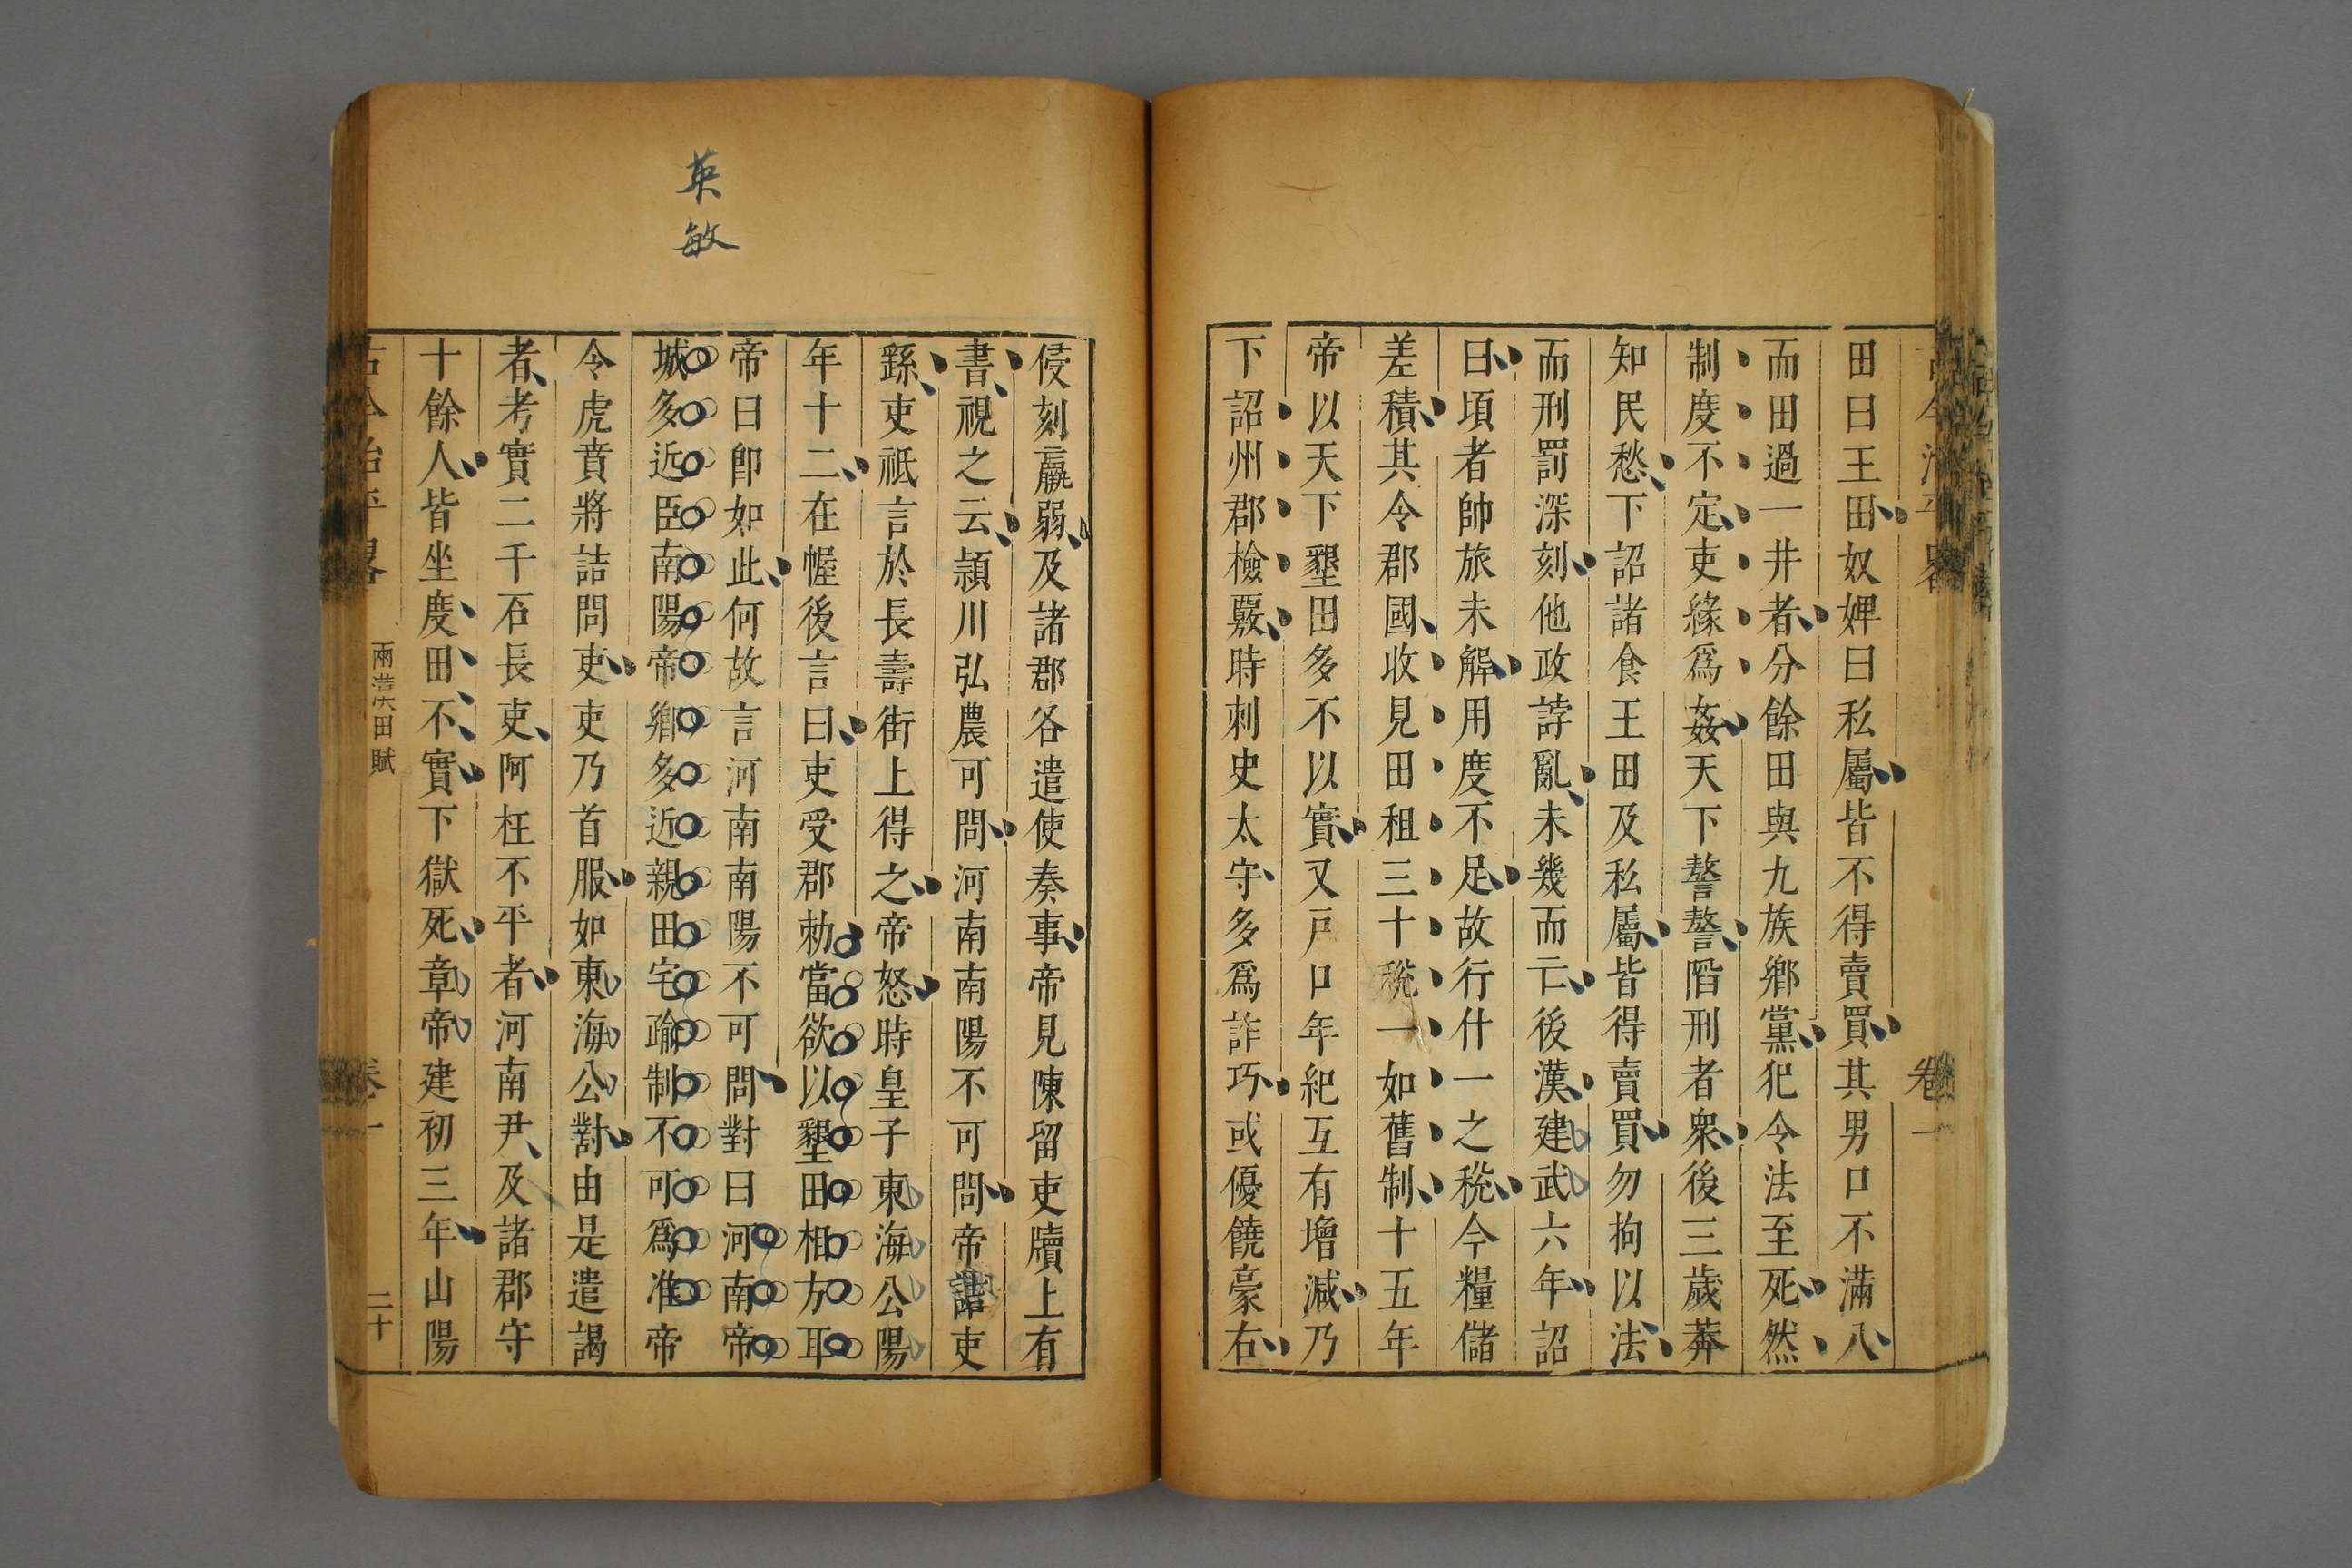 田曰王田奴婢曰私屬皆不得賣買其男口不滿八
而田過一井者分餘田與九族鄉黨犯令法至死然
制度不定吏緣爲姦天下謷謷陷刑者衆後三歲莽
知民愁下詔諸食王田及私屬皆得賣買勿拘以法
而刑罰深刻他政誖亂未幾而亡後漢建武六年詔
曰頃者師旅未解用度不足故行什一之稅今糧儲
差積其令郡國收見田租三十稅一如舊制十五年
帝以天下墾田多不以實又戸口年紀互有增減乃
下詔州郡檢覈時刺史太守多爲詐巧或優饒豪右
侵刻羸弱及諸郡各遣使奏事帝見陳留吏牘上有
書視之云潁川弘農可問河南南陽不可問帝詰吏
繇吏祗言於長壽街上得之帝怒時皇子東海公陽
年十二在幄後言曰吏受郡勅當欲以墾田相方耳
帝曰卽如此何故言河南南陽不可問對曰河南帝
城多近臣南陽帝鄉多近親田宅踰制不可爲准帝
令虎賁將詰問吏吏乃首服如東海公對由是遣謁
者考實二千石長吏阿枉不平者河南尹及諸郡守
十餘人皆坐度田不實下獄死章帝建初三年山陽
古今治平畧 兩漢田賦 卷一 二十
英敏